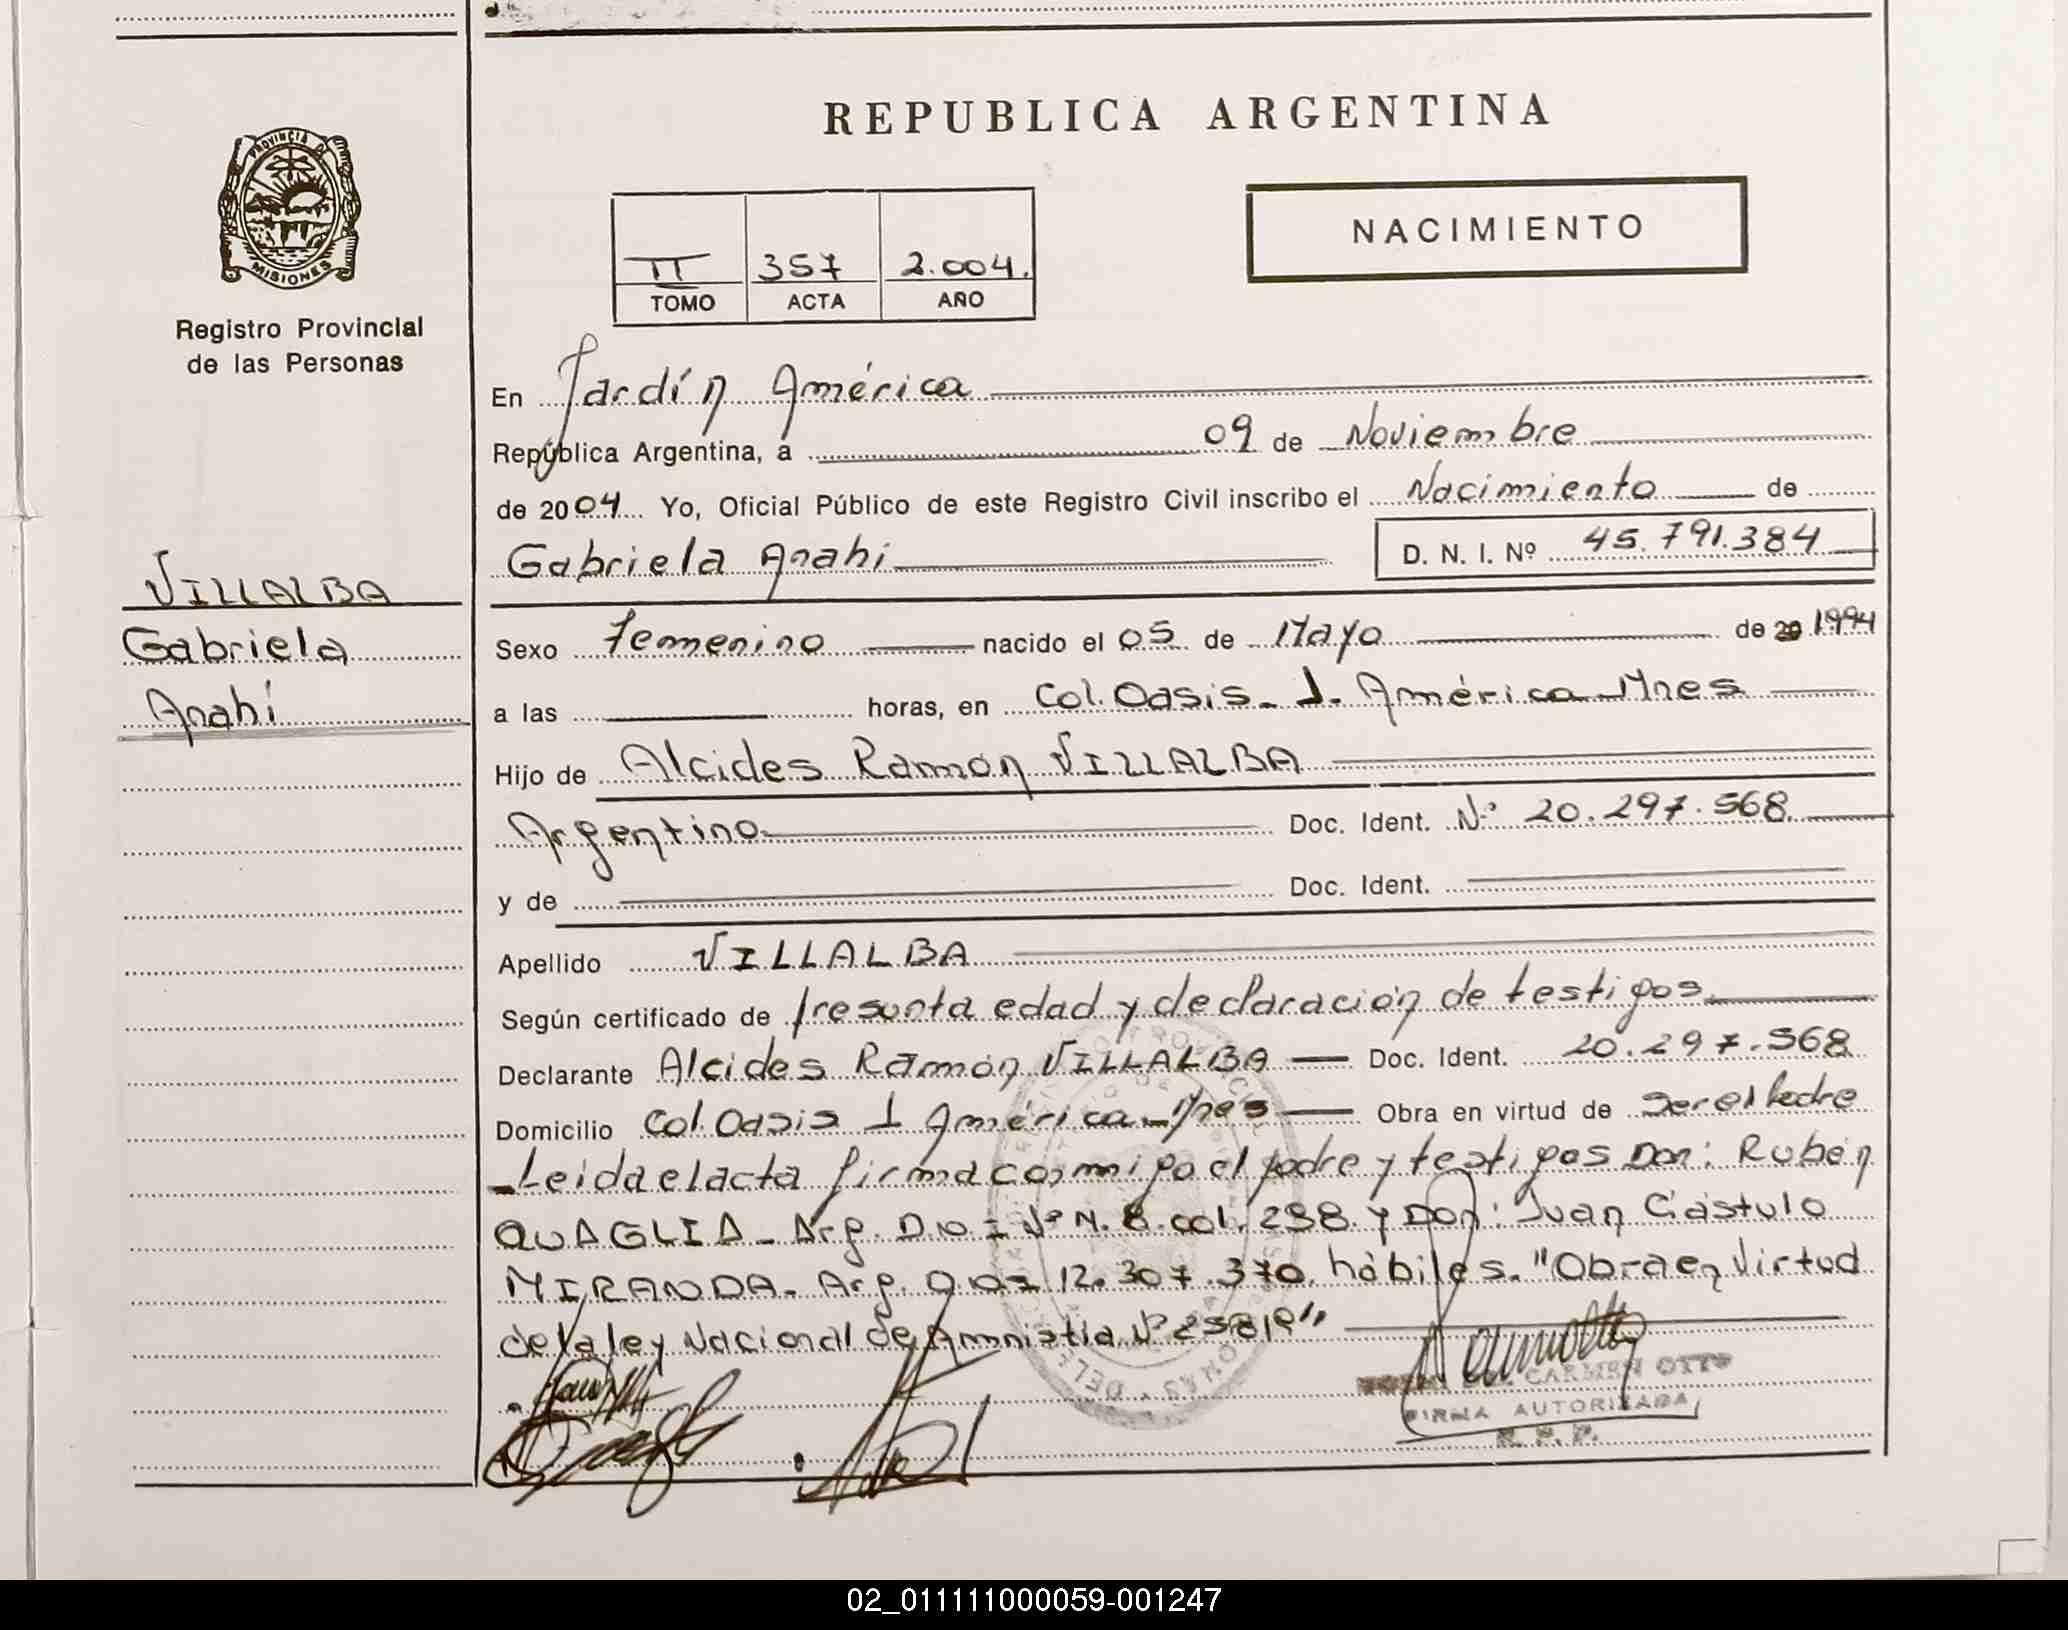 REPUBLICA ARGENTINA
PROVINCIA DE
MISIONES
Registro Provincial
de las Personas
NACIMIENTO
II 357 2.004.
TOMO ACTA AÑO
En Jardín América
República Argentina, a 09 de Noviembre
de 2004 Yo, Oficial Público de este Registro Civil inscribo el Nacimiento de
Gabriela Anahi D. N. I. Nº 45.791.384
VILLALBA
Gabriela
Anahí
Sexo Femenino nacido el 05 de Mayo de 20 1994
a las horas, en Col. Oasis - J. América - Mnes
Hijo de Alcides Ramón VILLALBA
Argentino Doc. Ident. Nº 20.297.568
y de Doc. Ident.
Apellido VILLALBA
Según certificado de Presunta edad y declaración de testigos
Declarante Alcides Ramón VILLALBA Doc. Ident. 20.297.568
Domicilio Col. Oasis J América - Mnes Obra en virtud de Ser el Padre
Leida el acta firma conmigo el padre y testigos Don: Rubén
QUAGLIA - Arg. D.N.I Nº M. 8.001.298 y Don: Juan Cástulo
MIRANDA - Arg. D.N.I 12.307.370 hábiles. "Obra en Virtud
de la ley Nacional de Amnistia Nº 25819"
CARMEN OTTO
FIRMA AUTORIZADA
R. P. P.
02_011111000059-001247